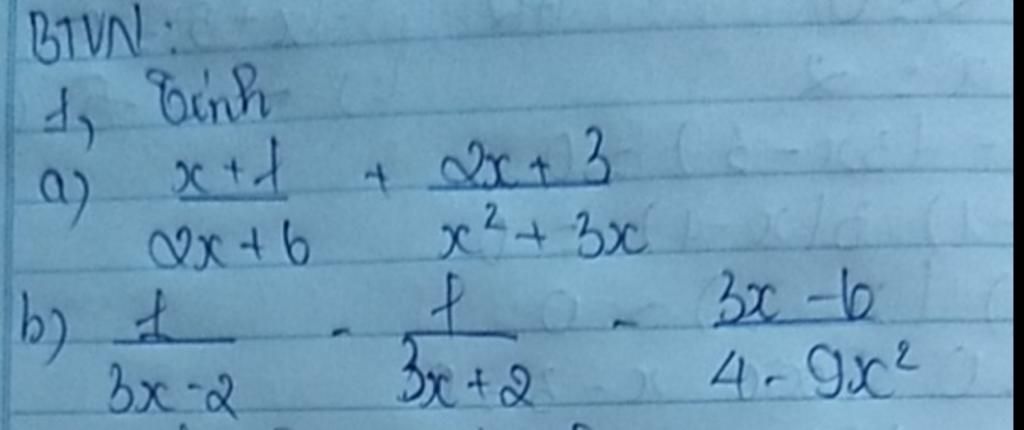 BTVN:
1, Tính
a) (x+1)/(2x+6) + (2x+3)/(x²+3x)
b) 1/(3x-2) - 1/(3x+2) - (3x-6)/(4-9x²)